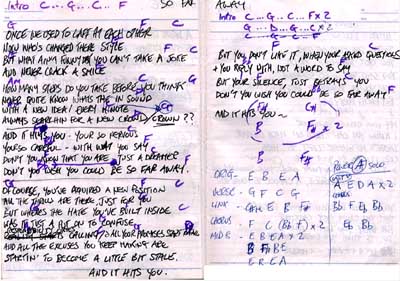 Intro C...G...C...F
SO FAR
G F C
ONCE WE USED TO LAFF AT EACH OTHER
NOW WHO'S CHANGED THERE STYLE
BUT WHAT AINT FUNNY IS YOU CAN'T TAKE A JOKE
AND NEVER CRACK A SMILE
HOW MANY STEPS DO YOU TAKE BEFORE YOU THINK
NEVER QUITE KNOW WHATS THE IN SOUND
WITH A NEW IDEA EVERY MINUTE
ALWAYS SEARCHIN FOR A NEW CROWD/CROWN ??
AND IT HITS YOU - YOUR SO SERIOUS
YOUR SO CAREFUL - WITH WHAT YOU SAY
DON'T YOU KNOW THAT YOU ARE JUST A DREAMER
DON'T YOU WISH YOU COULD BE SO FAR AWAY.
OF COURSE, YOU'VE ACQUIRED A NEW POSITION
ALL THE THROW ARE THERE JUST FOR YOU
BUT WHERES THE HATE YOU'VE BUILT INSIDE
WAS IT JUST A PUT ON TO CONFUSE
IS CALLING TO ALL YOUR PROMISES
AND ALL THE EXCUSES YOU KEEP MAKING ARE
STARTIN' TO BECOME A LITTLE BIT STALE.
AND IT HITS YOU.
AWAY
Intro C...G...C...F x 2
G...D...G...C x 2
BUT YOU DON'T LIKE IT, WHEN YOUR ASKED QUESTIONS
& YOU REPLY WITH, NOT A WORD TO SAY
BUT YOUR SILENCE, JUST BETRAYS YOU
DON'T YOU WISH YOU COULD BE SO FAR AWAY
AND IT HITS YOU ~
ORIG - E B E A
VERSE - G F C G
LINK - E B F
CHORUS - F C (Bb F) x 2
MID 8 - E B E A x 2
B F# B E
E B E A
SOLO
A E D A x 2
Bb F Eb Bb
Eb Bb